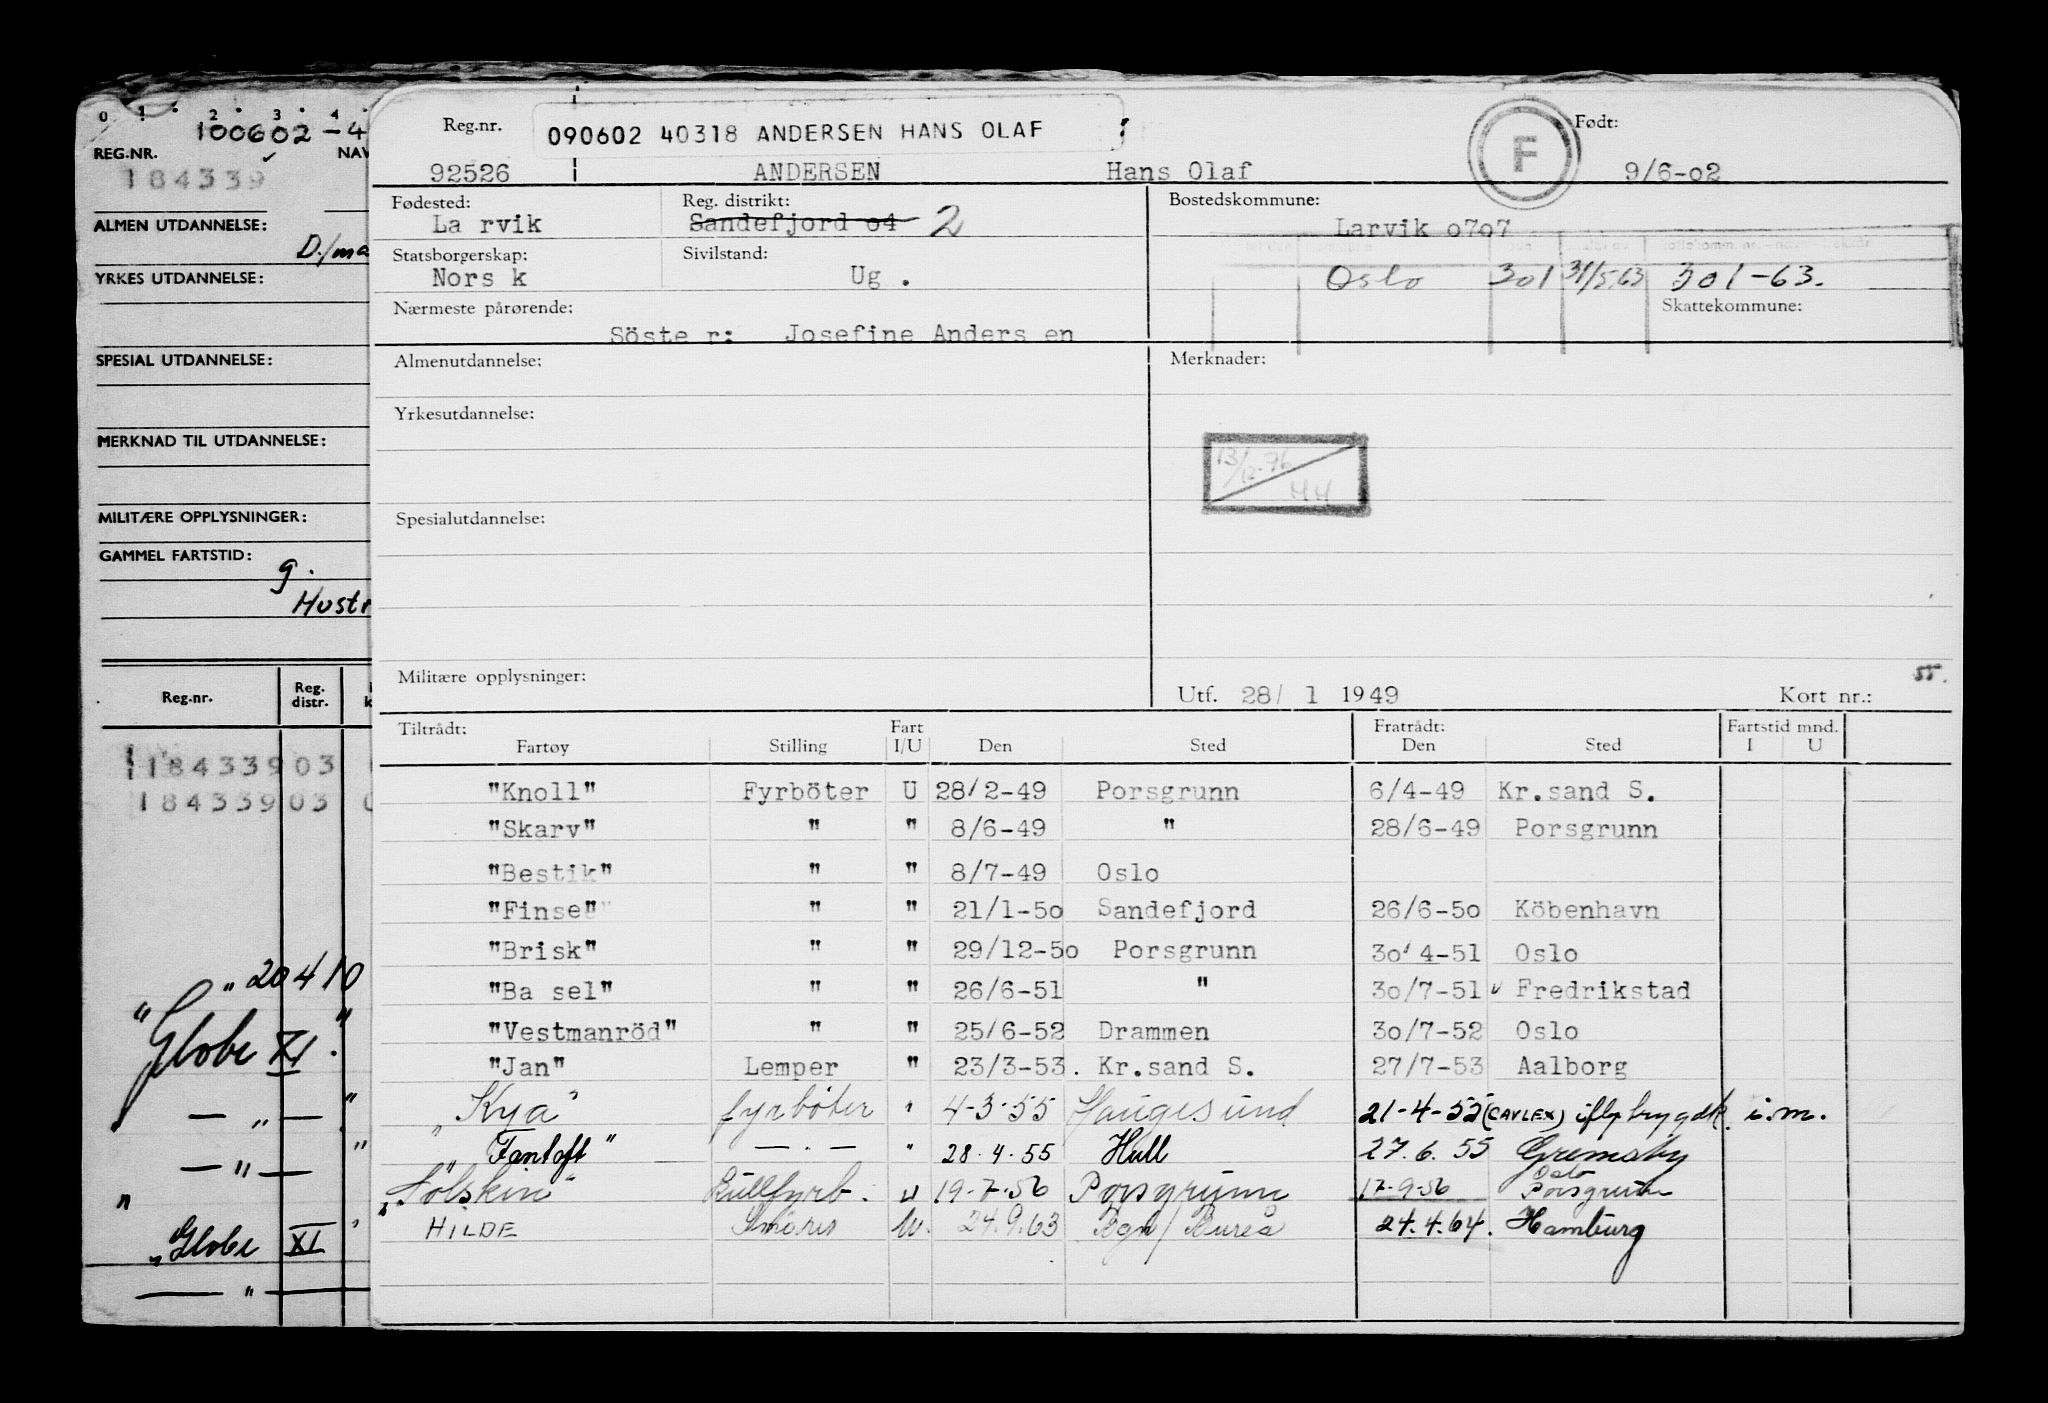 0 1 2 3 4
100602-4
REG.NR. NAV
184339
ALMEN UTDANNELSE:
D./ma
YRKES UTDANNELSE:
SPESIAL UTDANNELSE:
MERKNAD TIL UTDANNELSE:
MILITÆRE OPPLYSNINGER:
GAMMEL FARTSTID:
g.
Hustr
Reg.nr. Reg. distr. k
118433903
18433903
" 20 4 10
"Globe XI."
— " — "
— " — "
"
"Globe XI "
— " —
Reg.nr. 090602 40318 ANDERSEN HANS OLAF F Født:
92526 ANDERSEN Hans Olaf 9/6-o2
Fødested: Reg. distrikt: Bostedskommune:
La rvik Sandefjord o4 2 Larvik o7o7
Statsborgerskap: Sivilstand:
Nors k Ug . Oslo 301 31/5.63 301-63.
Nærmeste pårørende: Skattekommune:
Söste r: Josefine Anders en
Almenutdannelse: Merknader:
Yrkesutdannelse:
13/12-76
HH
Spesialutdannelse:
Militære opplysninger: 55.
Utf. 28/ 1 1949 Kort nr.:
Tiltrådt: Fart Fratrådt: Fartstid mnd.
Fartøy Stilling I/U Den Sted Den Sted I U
"Knoll" Fyrböter U 28/2-49 Porsgrunn 6/4-49 Kr.sand S.
"Skarv" " " 8/6-49 " 28/6-49 Porsgrunn
"Bestik" " " 8/7-49 Oslo
"Finse" " " 21/1-5o Sandefjord 26/6-5o Köbenhavn
"Brisk" " " 29/12-5o Porsgrunn 3o/4-51 Oslo
"Ba sel" " " 26/6-51 " 3o/7-51 Fredrikstad
"Vestmanröd" " " 25/6-52 Drammen 3o/7-52 Oslo
"Jan" Lemper " 23/3-53. Kr.sand S. 27/7-53 Aalborg
"Kya" fyrböter " 4-3-55 Haugesund 21-4-55 (CAVLEX) i.m.
"Fantoft" — . — " 28.4.55 Hull 27.6.55 Grimsby
Oslo
"Solskin" Lullfyrb. u 19-7-56 Porsgrunn 17-9-56 Porsgrunn
HILDE Smöris U. 24.9.63 Kgn/Bureå 24.4.64. Hamburg